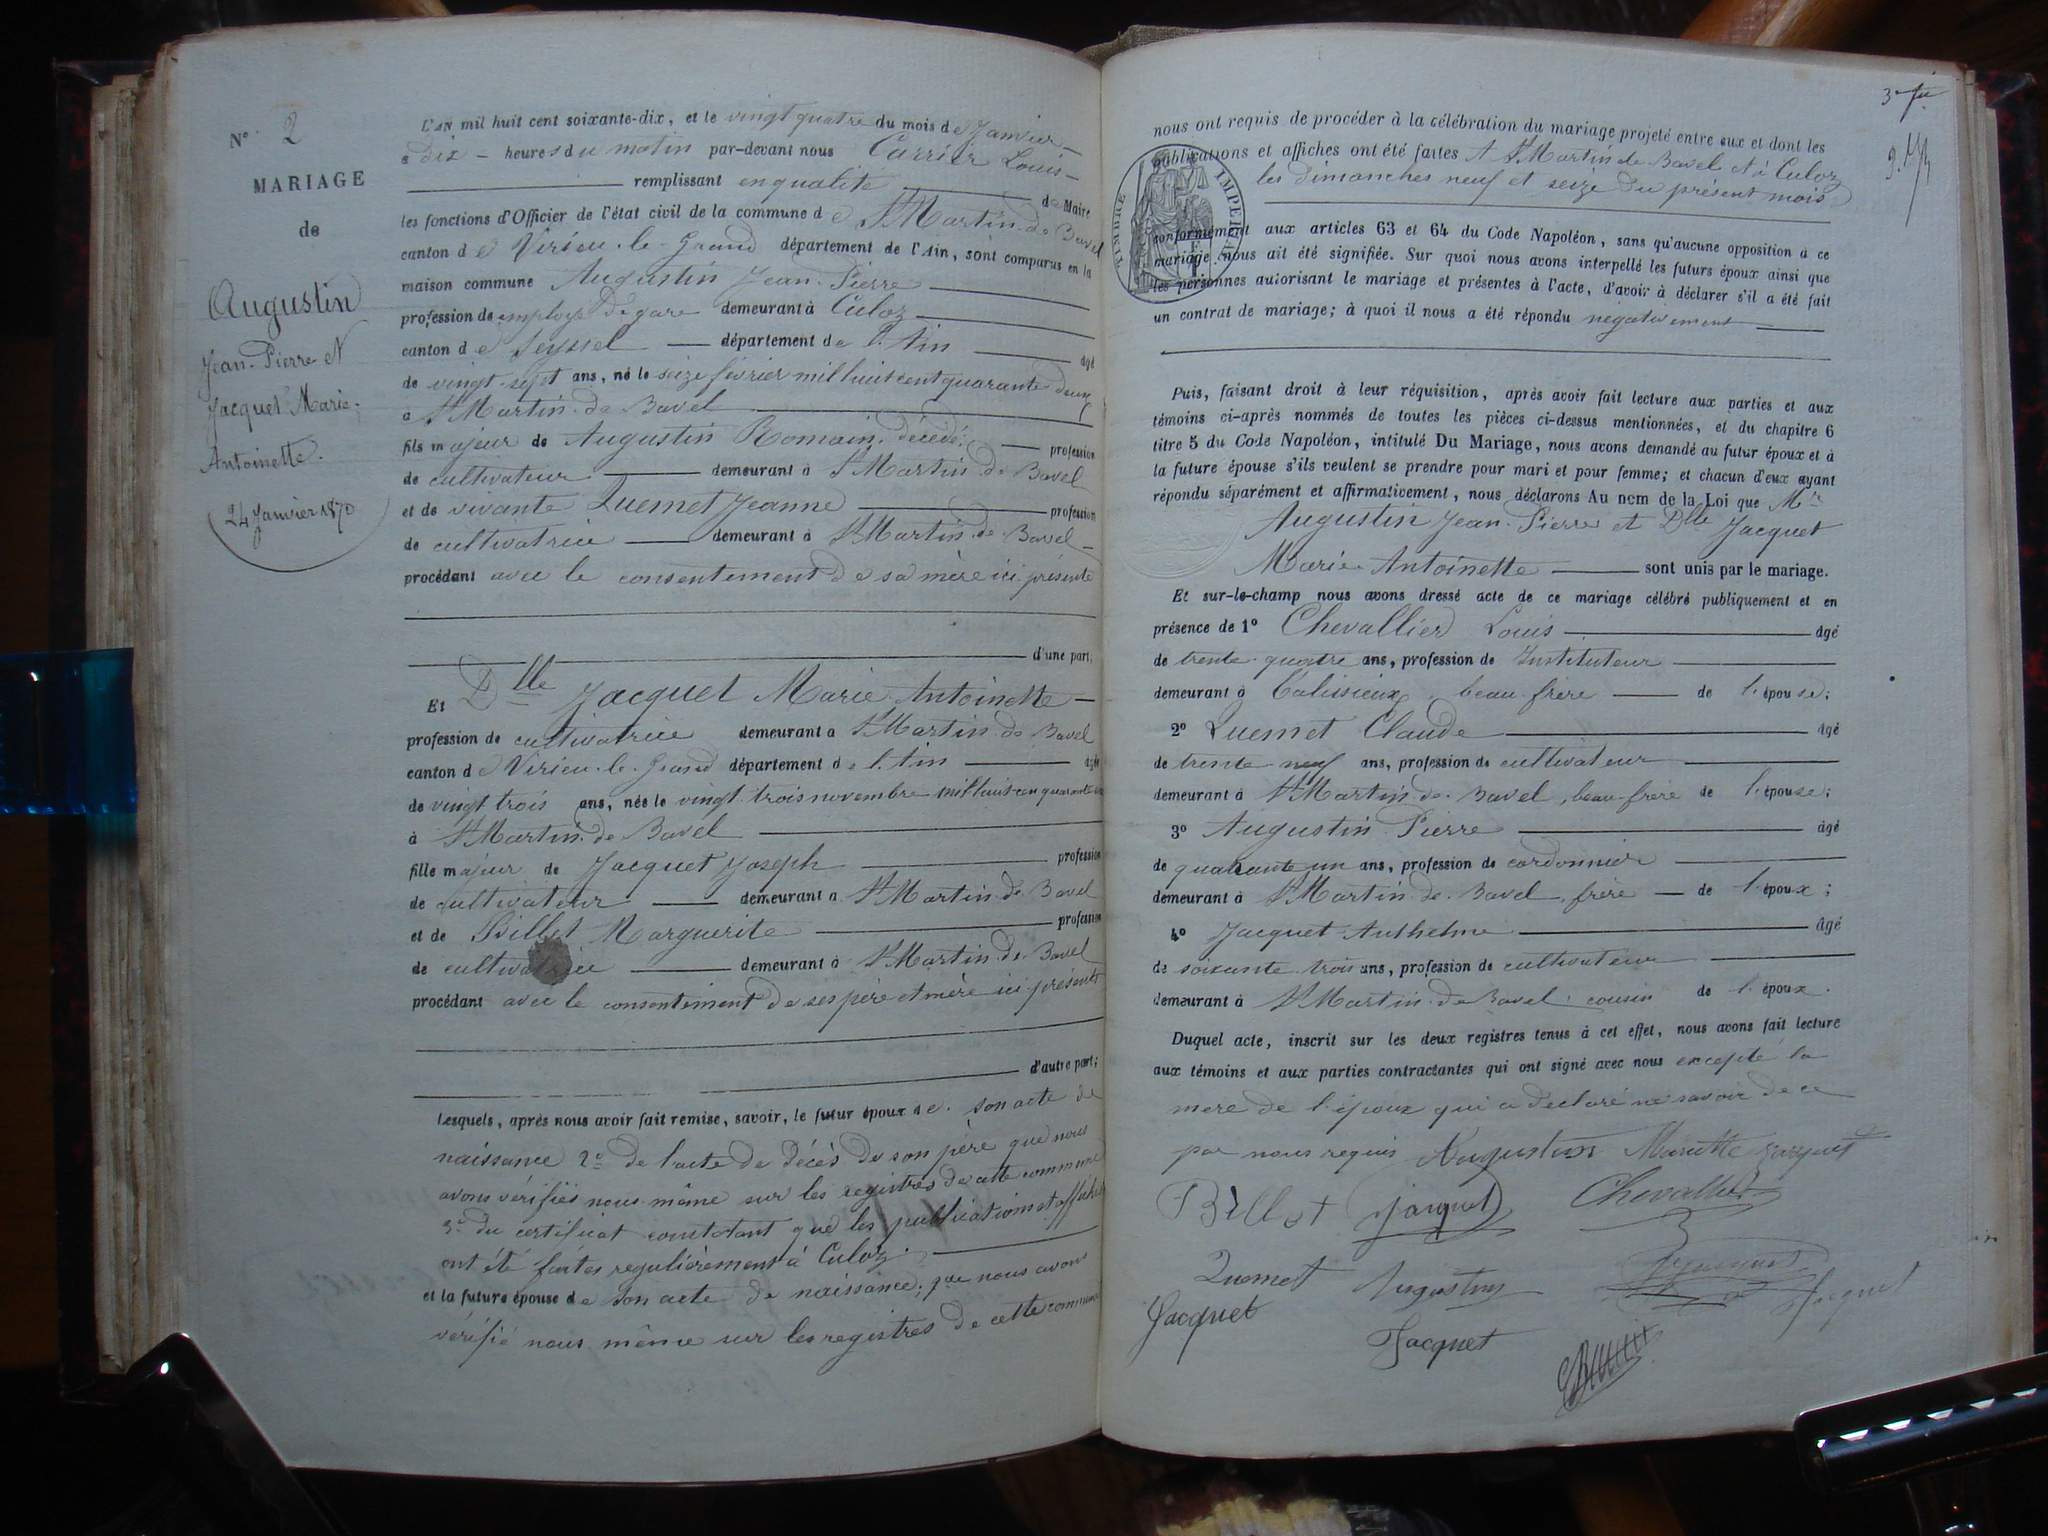 N° 2
MARIAGE
de
Augustin
Jean-Pierre et
Jacquet Marie-
Antoinette.
24 Janvier 1870
L'AN mil huit cent soixante-dix, et le vingt quatre du mois de Janvier
à dix heures du matin par-devant nous Carrier Louis
remplissant en qualité de Maire
les fonctions d'Officier de l'état civil de la commune de St Martin de Bavel
canton de Virieu-le-Grand département de l'Ain, sont comparus en la
maison commune Augustin Jean-Pierre
profession de employé de gare demeurant à Culoz
canton de Seyssel département de l'Ain âgé
de vingt-sept ans, né le seize février mil huit cent quarante deux
à St Martin de Bavel
fils majeur de Augustin Romain décédé, profession
de cultivateur demeurant à St Martin de Bavel
et de vivante Quemet Jeanne profession
de cultivatrice demeurant à St Martin de Bavel
procédant avec le consentement de sa mère ici présente
d'une part;
Et Dlle Jacquet Marie Antoinette
profession de cultivatrice demeurant à St Martin de Bavel
canton de Virieu-le-Grand département de l'Ain âgée
de vingt trois ans, née le vingt trois novembre mil huit cent quarante
à St Martin de Bavel
fille majeur de Jacquet Joseph profession
de cultivateur demeurant à St Martin de Bavel
et de Billet Marguerite profession
de cultivatrice demeurant à St Martin de Bavel
procédant avec le consentiment de ses père et mère ici présents
d'autre part;
Lesquels, après nous avoir fait remise, savoir, le futur époux de son acte de
naissance 2° de l'acte de décès de son père que nous
avons vérifiés nous même sur les registres de cette commune
3° du certificat constatant que les publications et affiches
ont été faites regulièrement à Culoz.
et la future épouse de son acte de naissance, que nous avons
vérifié nous même sur les registres de cette commune
3e
nous ont requis de procéder à la célébration du mariage projeté entre eux et dont les
publications et affiches ont été faites à St Martin de Bavel et à Culoz
les dimanches neuf et seize du présent mois
TIMBRE IMPERIAL
conformément aux articles 63 et 64 du Code Napoléon, sans qu'aucune opposition à ce
mariage nous ait été signifiée. Sur quoi nous avons interpellé les futurs époux ainsi que
les personnes autorisant le mariage et présentes à l'acte, d'avoir à déclarer s'il a été fait
un contrat de mariage; à quoi il nous a été répondu negativement
Puis, faisant droit à leur réquisition, après avoir fait lecture aux parties et aux
témoins ci-après nommés de toutes les pièces ci-dessus mentionnées, et du chapitre 6
titre 5 du Code Napoléon, intitulé Du Mariage, nous avons demandé au futur époux et à
la future épouse s'ils veulent se prendre pour mari et pour femme; et chacun d'eux ayant
répondu séparément et affirmativement, nous déclarons Au nom de la Loi que Mr
Augustin Jean-Pierre et Dlle Jacquet
Marie-Antoinette sont unis par le mariage.
Et sur-le-champ nous avons dressé acte de ce mariage célébré publiquement et en
présence de 1° Chevallier Louis âgé
de trente quatre ans, profession de Instituteur
demeurant à Talissieux, beau-frère de l'épouse;
2° Quemet Claude âgé
de trente neuf ans, profession de cultivateur
demeurant à St Martin de Bavel, beau-frère de l'épouse;
3° Augustin Pierre âgé
de quarante un ans, profession de cordonnier
demeurant à St Martin de Bavel, frère de l'époux;
4° Jacquet Anthelme âgé
de soixante trois ans, profession de cultivateur
demeurant à St Martin de Bavel, cousin de l'époux.
Duquel acte, inscrit sur les deux registres tenus à cet effet, nous avons fait lecture
aux témoins et aux parties contractantes qui ont signé avec nous excepté la
mère de l'époux qui a declaré ne savoir de ce
par nous requis Augustin Mariette Jacquet
Billet Jacquet Chevallier
Quemet Augustin Jacquet
Jacquet Jacquet